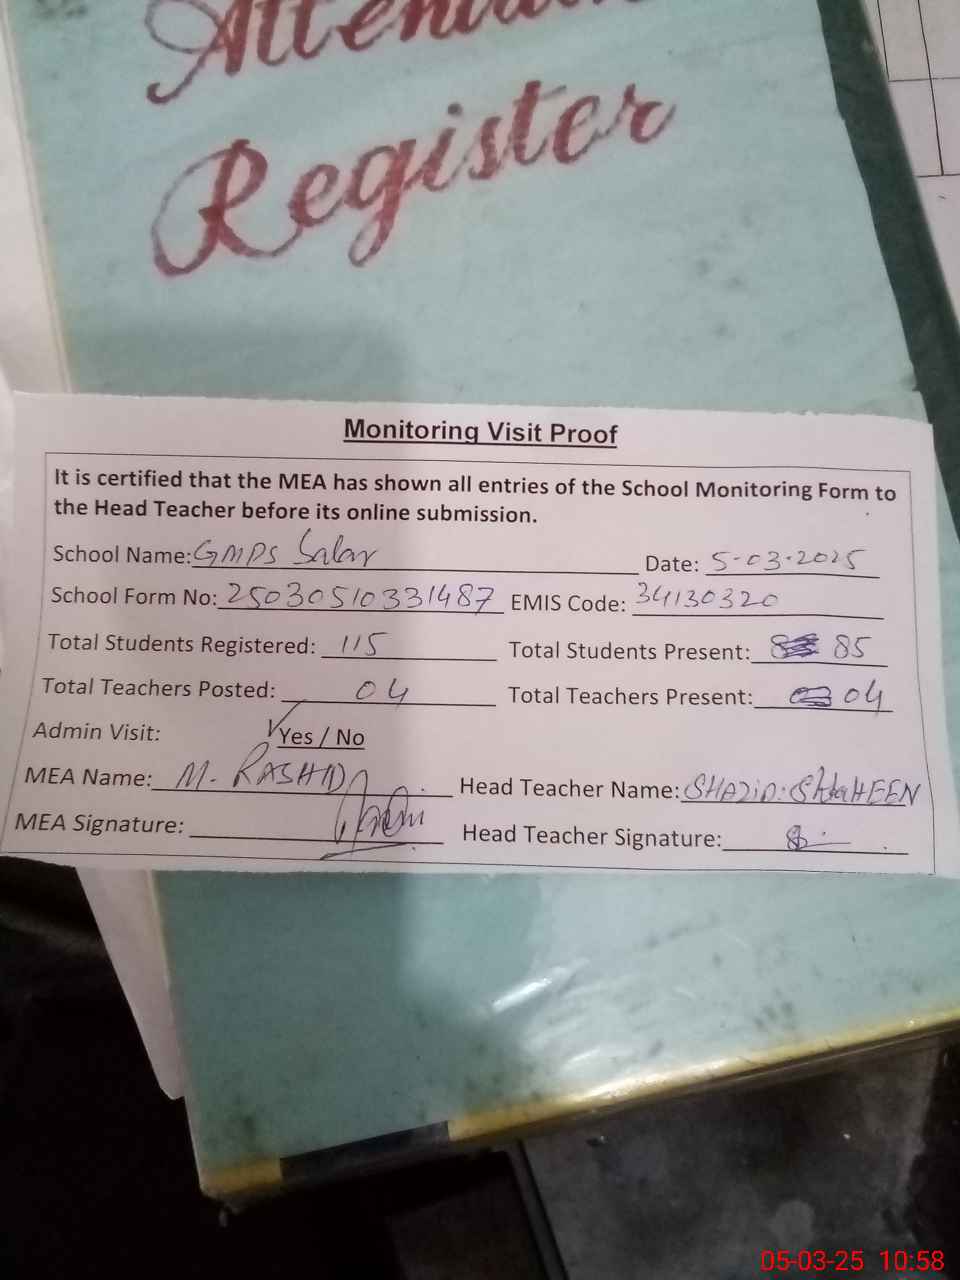 Register
Monitoring Visit Proof
It is certified that the MEA has shown all entries of the School Monitoring Form to
the Head Teacher before its online submission.
School Name: GMPS Salar Date: 5-03-2025
School Form No: 25030510331487 EMIS Code: 34130320
Total Students Registered: 115 Total Students Present: 85
Total Teachers Posted: 04 Total Teachers Present: 04
Admin Visit: Yes / No
MEA Name: M. RASHID Head Teacher Name: SHAHEEN
MEA Signature: Head Teacher Signature:
05-03-25 10:58